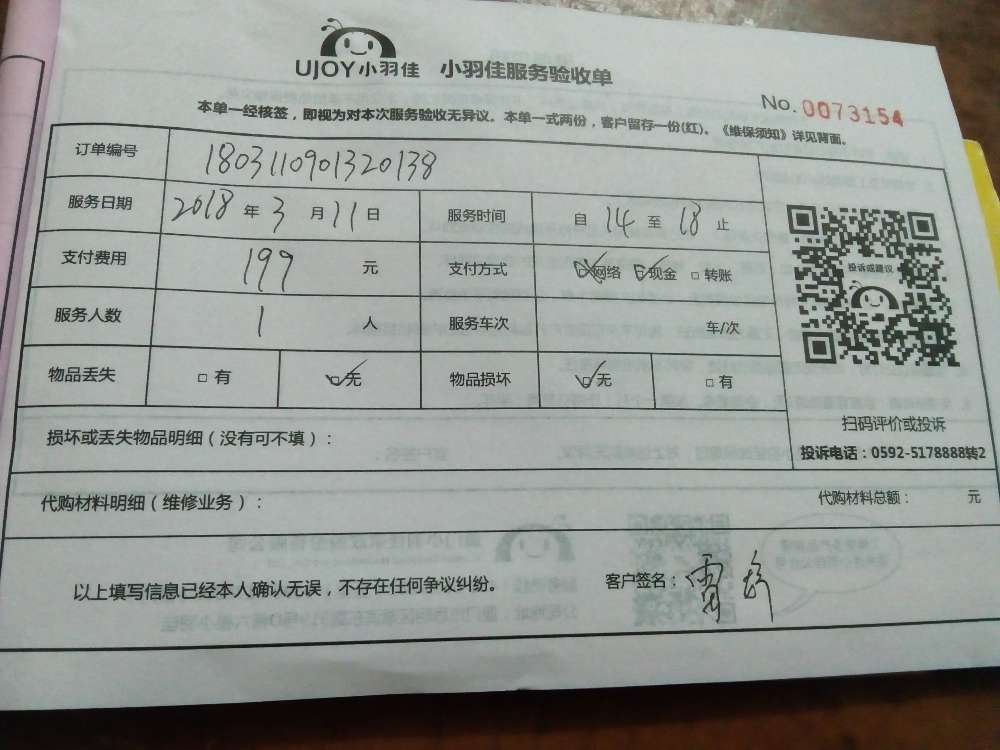 UJOY小羽佳 小羽佳服务验收单
No. 0073154
本单一经核签，即视为对本次服务验收无异议。本单一式两份，客户留存一份(红)。《维保须知》详见背面。
订单编号 1803110901320138
服务日期 2018 年 3 月 11 日 服务时间 自 14 至 18 止
支付费用 199 元 支付方式 网络 现金 转账
服务人数 1 人 服务车次 车/次
物品丢失 有 无 物品损坏 无 有
投诉或建议
扫码评价或投诉
投诉电话：0592-5178888转2
损坏或丢失物品明细（没有可不填）：
代购材料明细（维修业务）： 代购材料总额： 元
以上填写信息已经本人确认无误，不存在任何争议纠纷。 客户签名：